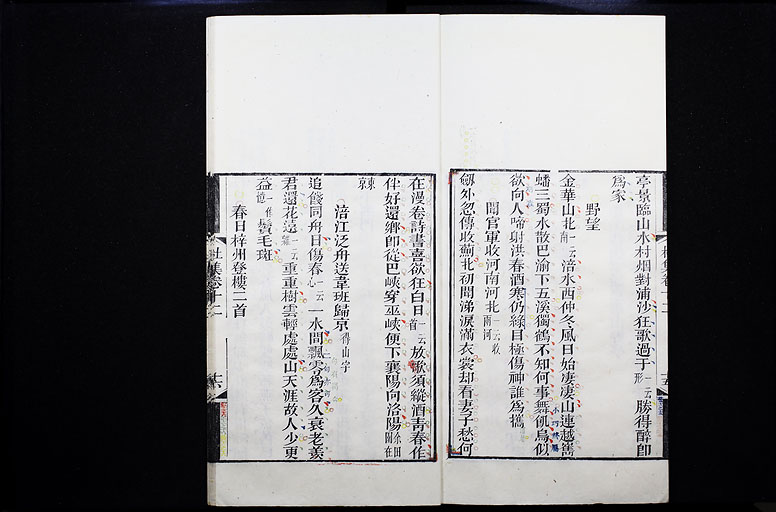 亭景臨山水村烟對浦沙狂歌過于一云形勝得醉即
為家
野望
金華山北一云南涪水西仲冬風日始淒淒山連越巂
蟠三蜀水散巴渝下五溪獨鶴不知何事舞飢烏似
欲向人啼射洪春酒寒仍綠目極傷神誰為攜
聞官軍收河南河北一云收兩河
劒外忽傳收薊北初聞涕淚滿衣裳却看妻子愁何
杜集卷十二
十五
在漫卷詩書喜欲狂白日一云首放歌須縱酒青春作
伴好還鄉即從巴峽穿巫峽便下襄陽向洛陽余田園在
東京
涪江泛舟送韋班歸京得山字
追餞同舟日傷春一云心一水間飄零為客久衰老羨
君還花遠一云重重樹雲輕處處山天涯故人少更
益一作憶鬢毛斑
春日梓州登樓二首
杜集卷十二
十六